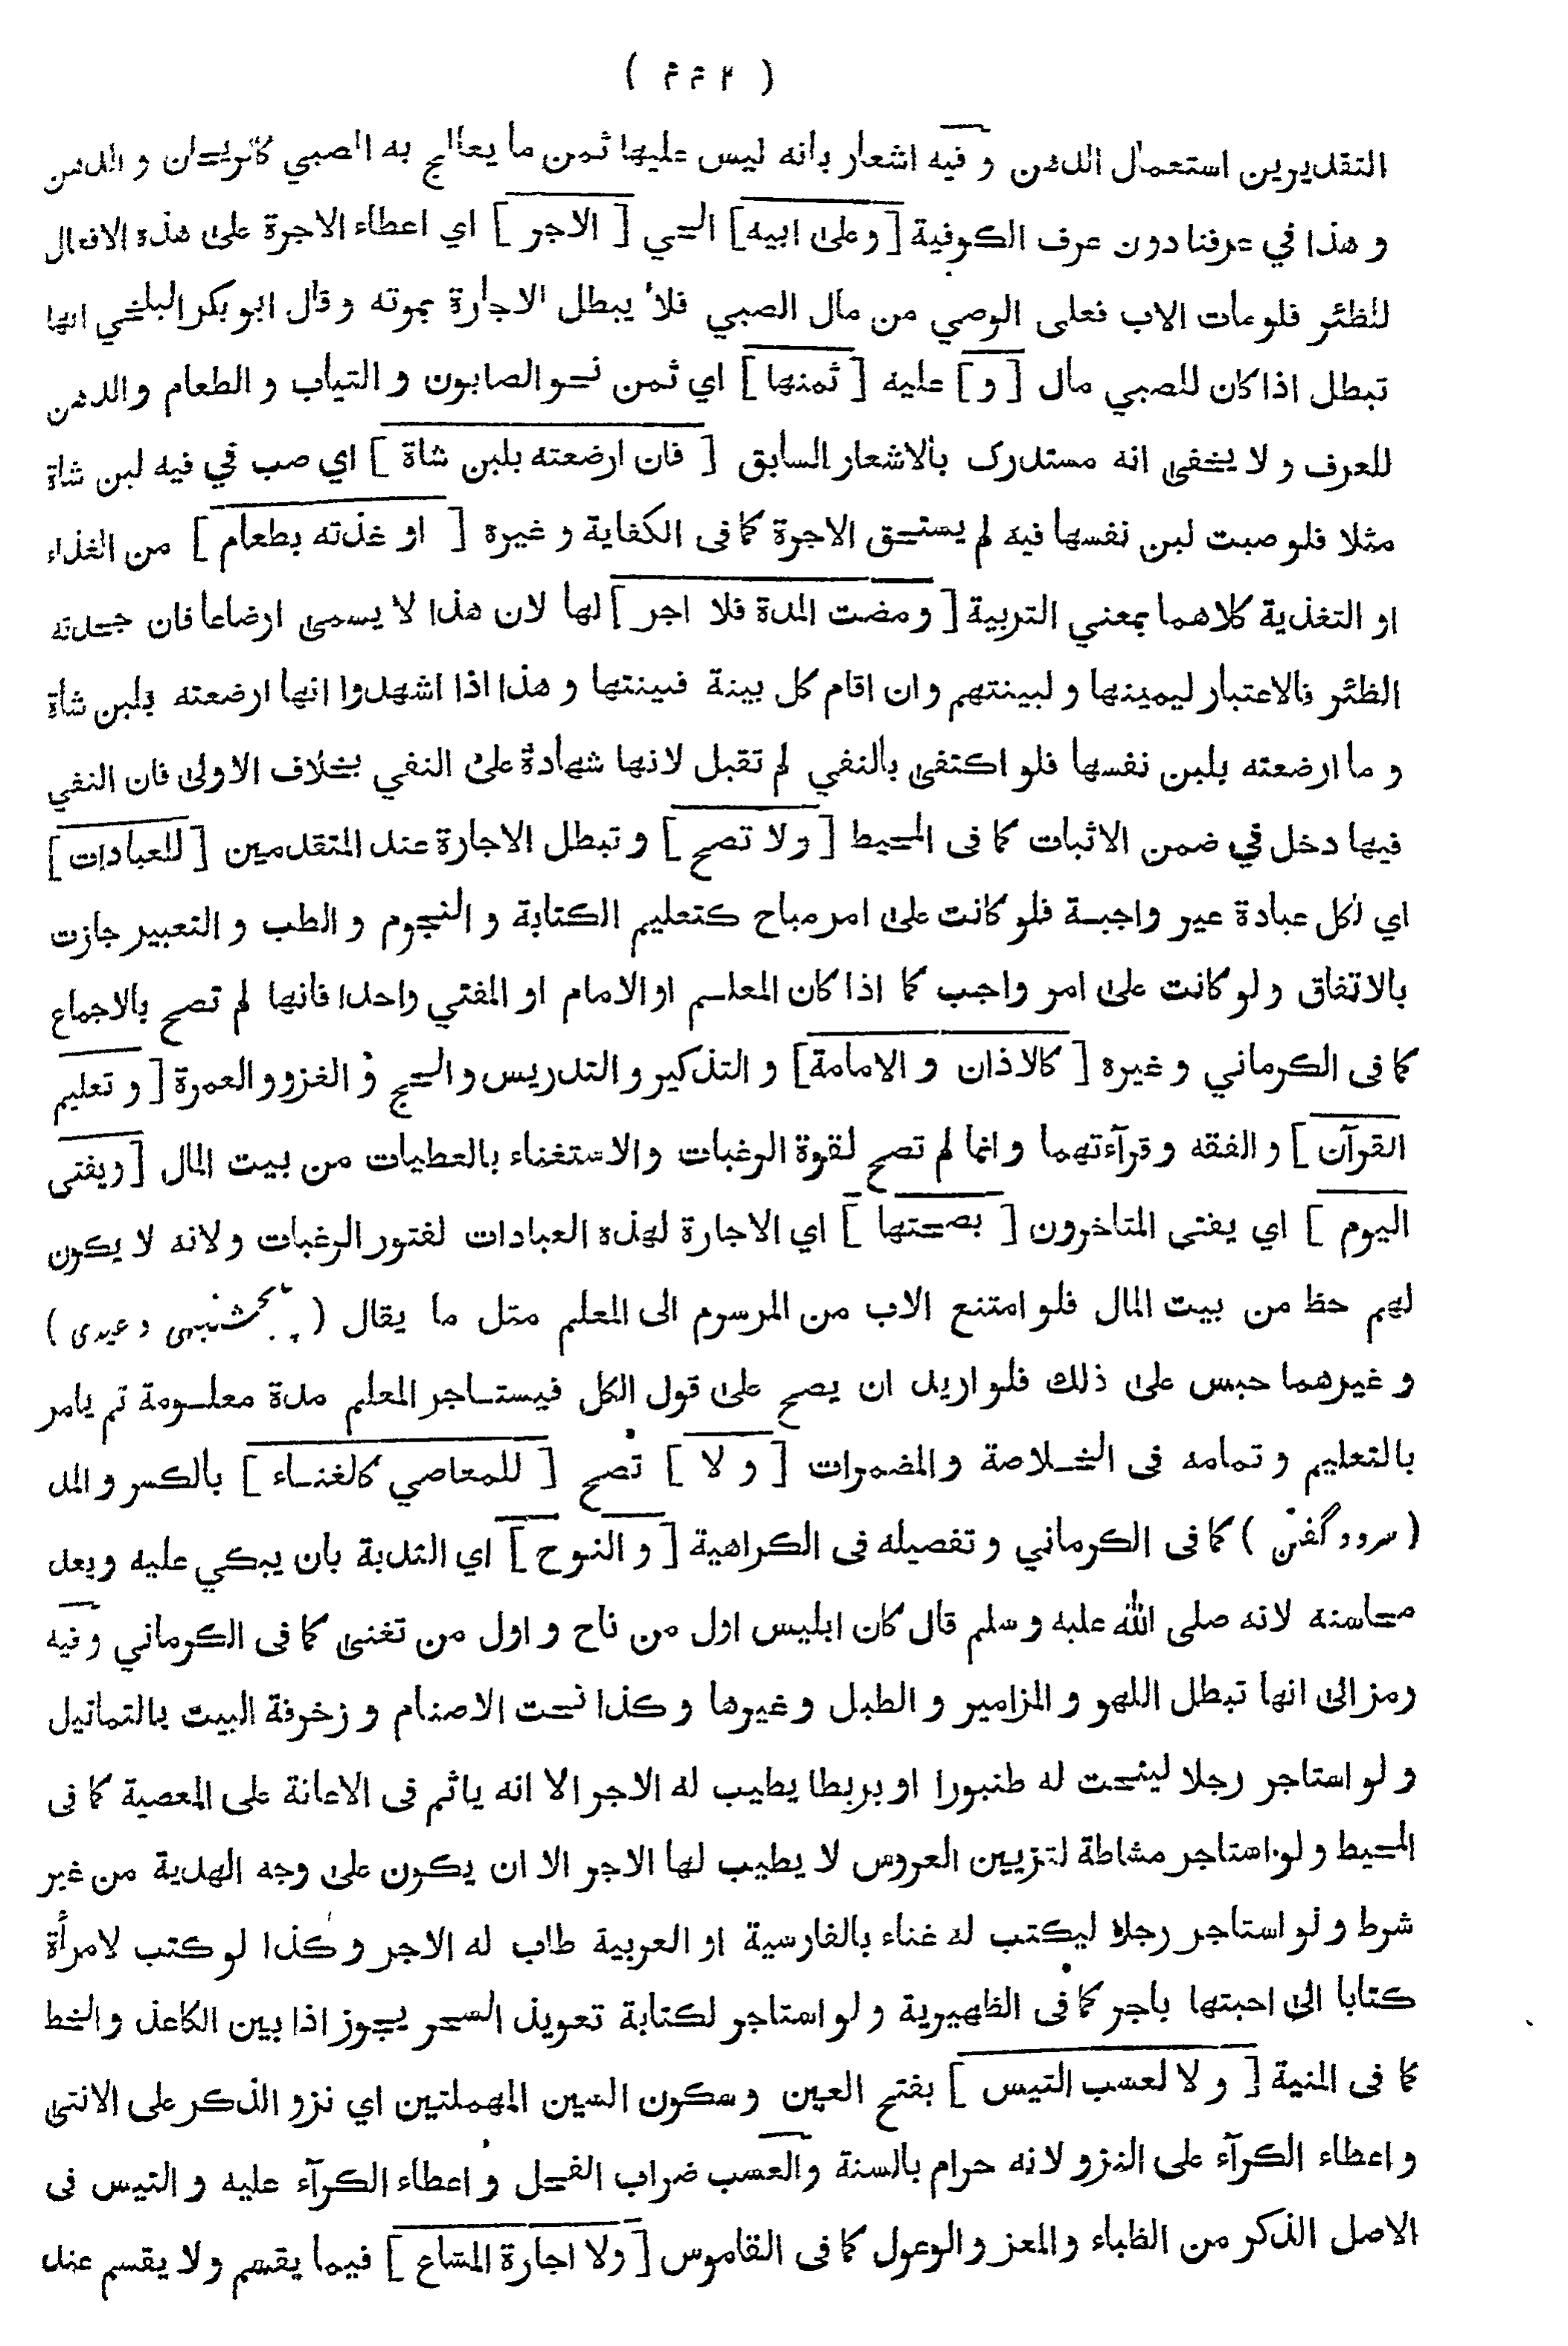 التقديرين استعمال الدهن و فيه اشعار بانه ليس عليها ثمن ما يعالج به الصبي كالريحان و الدهن
و هذا في عرفنا دون عرف الكوفية [ و على ابيه ] الحي [ الاجر ] اي اعطاء الاجرة على هذه الافعال
للظئر فلو مات الاب فعلى الوصي من مال الصبي فلا يبطل الاجارة بموته و قال ابو بكر البلخي انها
تبطل اذا كان للصبي مال [ و ] عليه [ ثمنها ] اي ثمن نحو الصابون و الثياب و الطعام و الدهن
للعرف و لا يخفى انه مستدرك بالاشعار السابق [ فان ارضعته بلبن شاة ] اي صب في فيه لبن شاة
مثلا فلو صبت لبن نفسها فيه لم يستحق الاجرة كما فى الكفاية و غيره [ او غذته بطعام ] من الغذاء
او التغذية كلاهما بمعني التربية [ و مضت المدة فلا اجر ] لها لان هذا لا يسمى ارضاعا فان جحدته
الظئر فالاعتبار ليمينها و لبينتهم و ان اقام كل بينة فبينتها و هذا اذا اشهدوا انها ارضعته بلبن شاة
و ما ارضعته بلبن نفسها فلو اكتفى بالنفي لم تقبل لانها شهادة على النفي بخلاف الاولى فان النفي
فيها دخل في ضمن الاثبات كما فى المحيط [ و لا تصح ] و تبطل الاجارة عند المتقدمين [ للعبادات ]
اي لكل عبادة غير واجبة فلو كانت على امر مباح كتعليم الكتابة و النجوم و الطب و التعبير جازت
بالاتفاق و لو كانت على امر واجب كما اذا كان المعلم او الامام او المفتي واحدا فانها لم تصح بالاجماع
كما فى الكرماني و غيره [ كالاذان و الامامة ] و التذكير و التدريس و الحج و الغزو و العمرة [ و تعليم
القرآن ] و الفقه و قرآءتهما و انما لم تصح لقوة الرغبات و الاستغناء بالعطيات من بيت المال [ و يفتى
اليوم ] اي يفتي المتاخرون [ بصحتها ] اي الاجارة لهذه العبادات لفتور الرغبات و لانه لا يكون
لهم حظ من بيت المال فلو امتنع الاب من المرسوم الى المعلم مثل ما يقال ( پنجشنبهى و عيدى )
و غيرهما حبس على ذلك فلو اريد ان يصح على قول الكل فيستاجر المعلم مدة معلومة ثم يامر
بالتعليم و تمامه فى الخلاصة و المضمرات [ و لا ] تصح [ للمعاصي كالغناء ] بالكسر و المد
( سرود گفتن ) كما فى الكرماني و تفصيله فى الكراهية [ و النوح ] اي الندبة بان يبكي عليه و يعد
محاسنه لانه صلى الله عليه و سلم قال كان ابليس اول من ناح و اول من تغنى كما فى الكرماني و فيه
رمز الى انها تبطل اللهو و المزامير و الطبل و غيرها و كذا نحت الاصنام و زخرفة البيت بالتماثيل
و لو استاجر رجلا لينحت له طنبورا او بربطا يطيب له الاجر الا انه ياثم فى الاعانة على المعصية كما فى
المحيط و لو استاجر مشاطة لتزيين العروس لا يطيب لها الاجر الا ان يكون على وجه الهدية من غير
شرط و لو استاجر رجلا ليكتب له غناء بالفارسية او العربية طاب له الاجر و كذا لو كتب لامرأة
كتابا الى احبتها باجر كما فى الظهيرية و لو استاجر لكتابة تعويذ السحر يجوز اذا بين الكاغذ و الخط
كما فى المنية [ و لا لعسب التيس ] بفتح العين و سكون السين المهملتين اي نزو الذكر على الانثى
و اعطاء الكرآء على النزو لانه حرام بالسنة و العسب ضراب الفحل و اعطاء الكرآء عليه و التيس فى
الاصل الذكر من الظباء و المعز و الوعول كما فى القاموس [ و لا اجارة المشاع ] فيما يقسم و لا يقسم عند